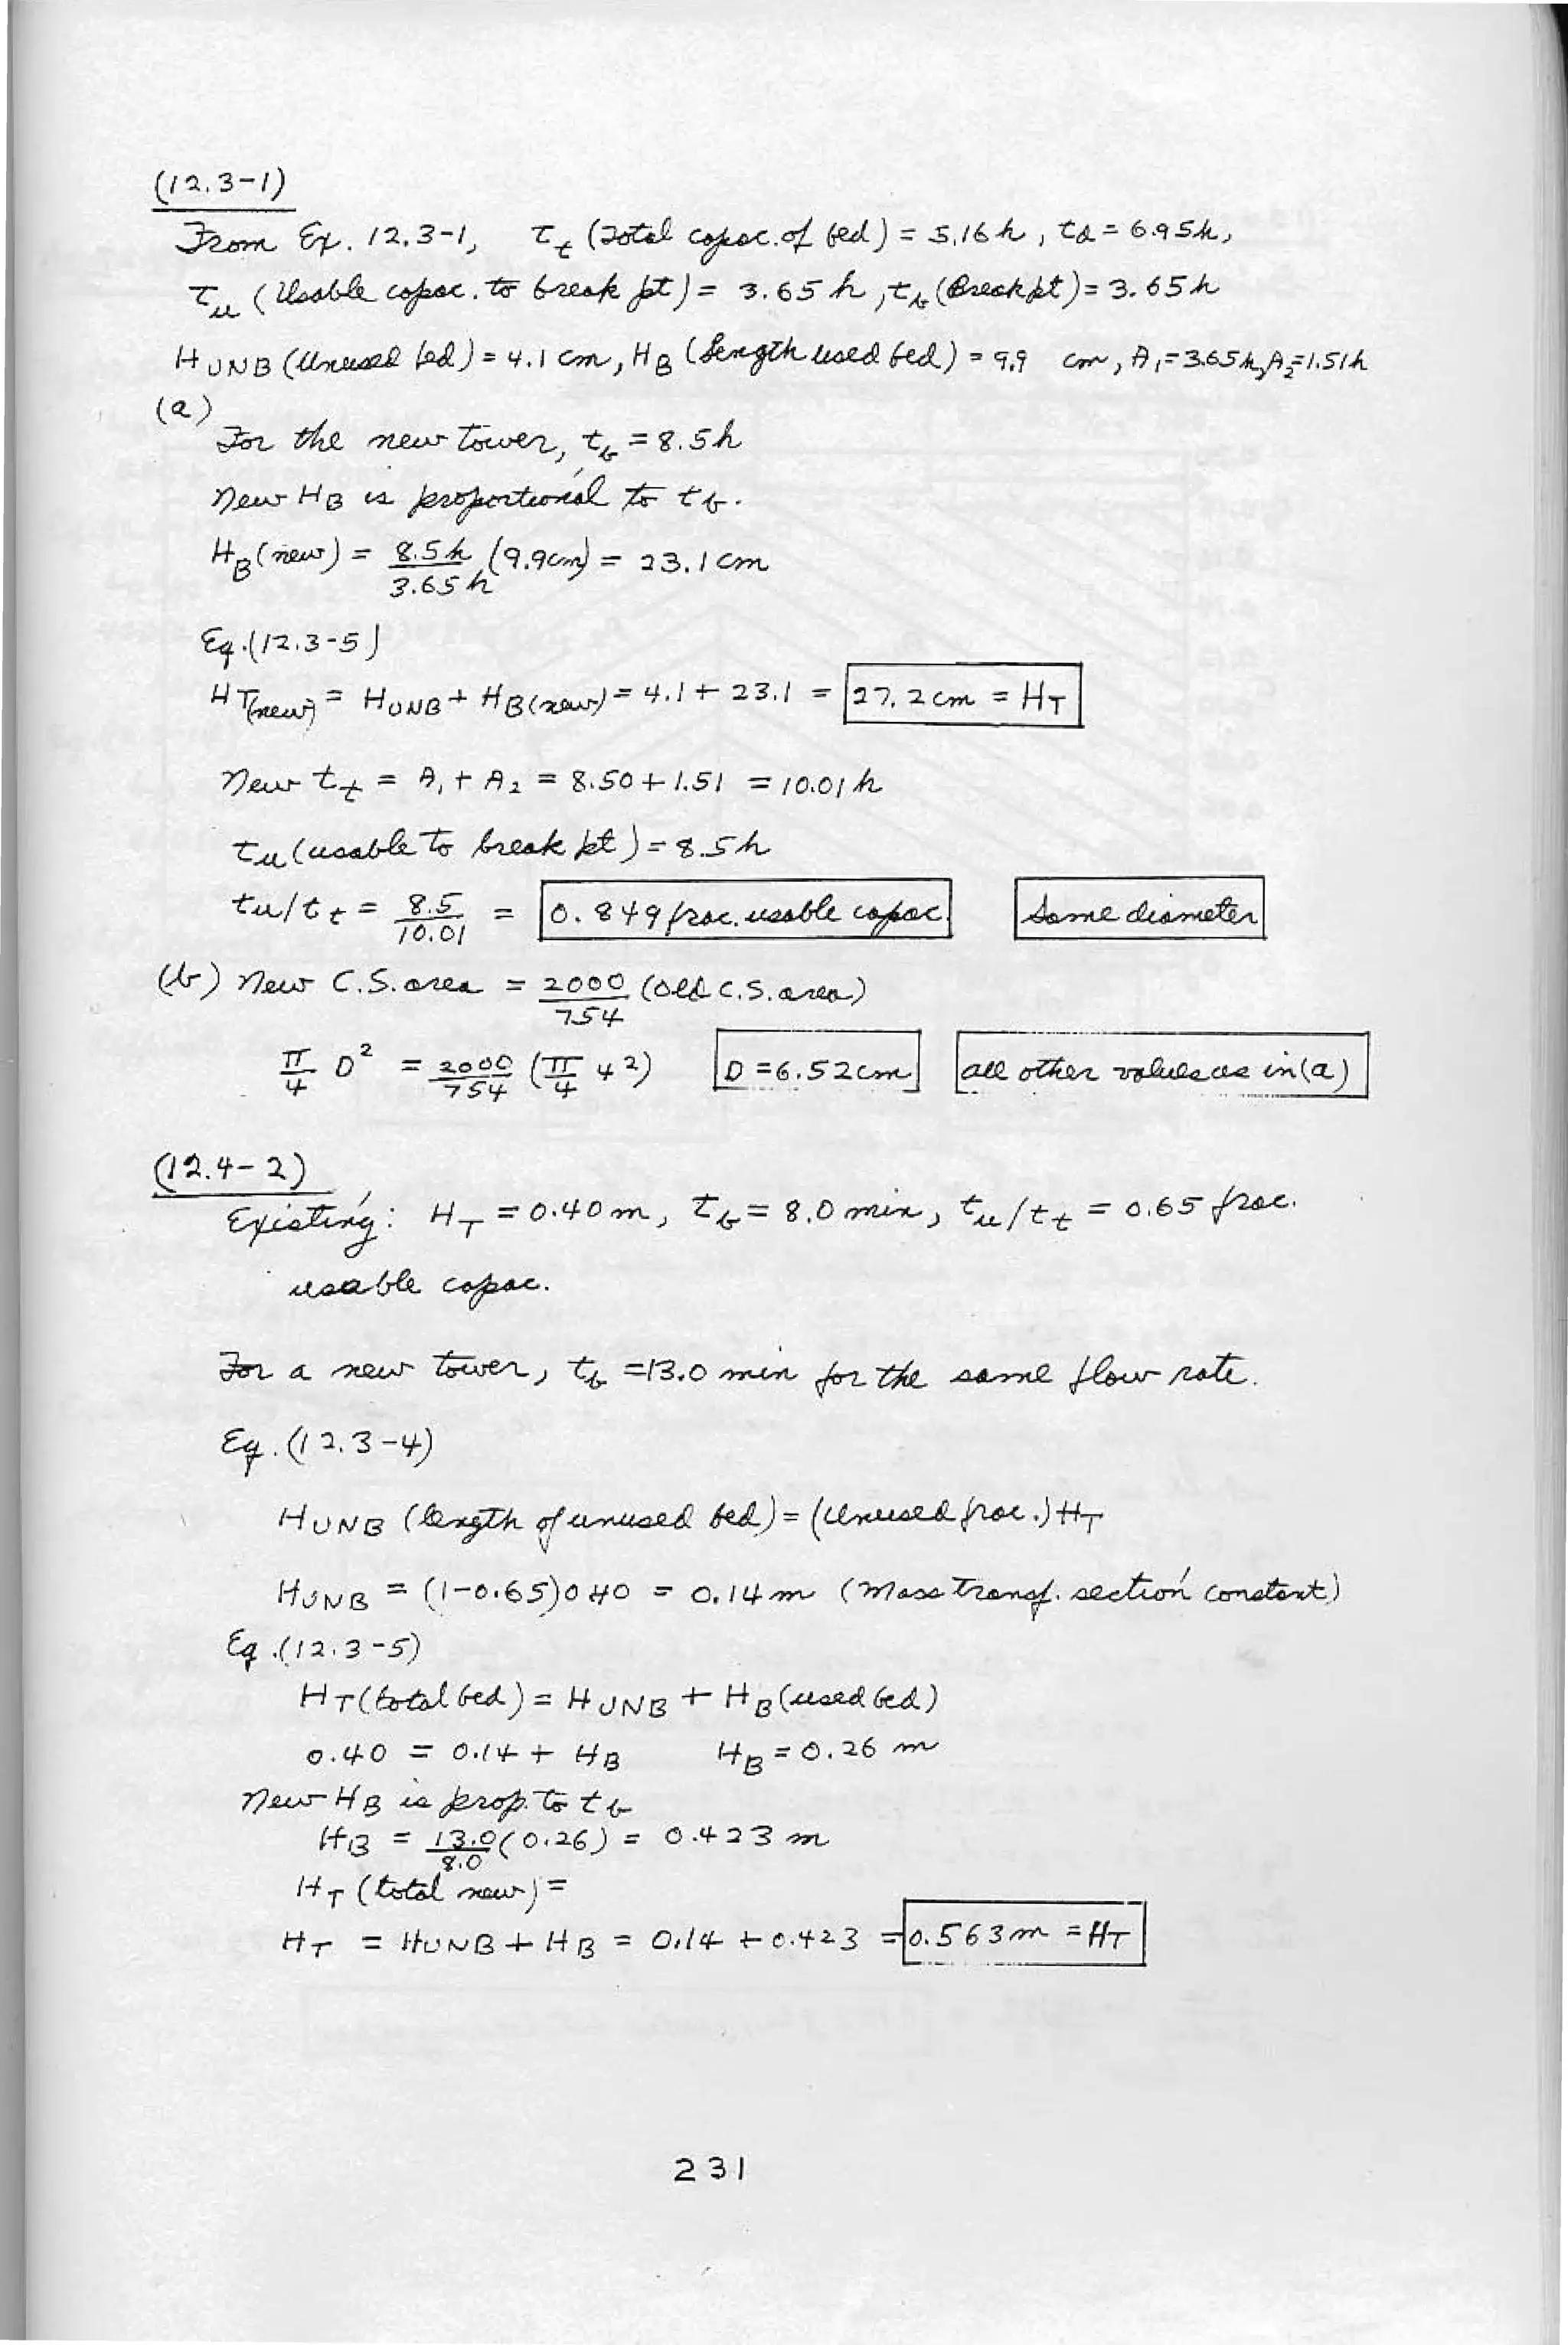 (12.3-1)
From Ex. 12.3-1, t_t (Total capac. of bed) = 5.16 h, t_d = 6.95 h,
t_u (Usable capac. to break pt) = 3.65 h, t_b (Break pt) = 3.65 h
H_UNB (Unused bed) = 4.1 cm, H_B (Length used bed) = 9.9 cm, A_1 = 3.65 h, A_2 = 1.51 h
(a)
For the new tower, t_b = 8.5 h
New H_B is proportional to t_b.
H_B (new) = 8.5 h / 3.65 h (9.9 cm) = 23.1 cm
Eq. (12.3-5)
H_T(new) = H_UNB + H_B(new) = 4.1 + 23.1 = 27.2 cm = H_T
New t_t = A_1 + A_2 = 8.50 + 1.51 = 10.01 h
t_u (usable to break pt) = 8.5 h
t_u/t_t = 8.5 / 10.01 = 0.849 frac. usable capac. Same diameter
(b) New C.S. area = 2000 / 754 (old C.S. area)
π/4 D² = 2000/754 (π/4 4²) D = 6.52 cm all other values as in (a)
(12.4-2)
Existing: H_T = 0.40 m, t_b = 8.0 min, t_u/t_t = 0.65 frac.
usable capac.
For a new tower, t_b = 13.0 min for the same flow rate.
Eq. (12.3-4)
H_UNB (length of unused bed) = (Unused frac.) H_T
H_UNB = (1-0.65)0.40 = 0.14 m (Mass transf. section constant)
Eq. (12.3-5)
H_T (total bed) = H_UNB + H_B (used bed)
0.40 = 0.14 + H_B H_B = 0.26 m
New H_B is prop. to t_b
H_B = 13.0/8.0 (0.26) = 0.423 m
H_T (total new) =
H_T = H_UNB + H_B = 0.14 + 0.423 = 0.563 m = H_T
231